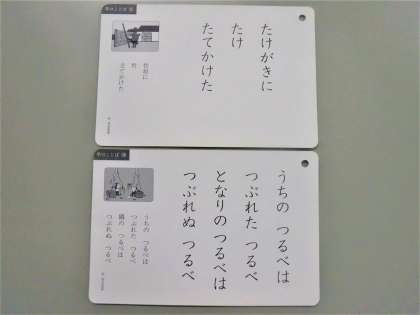 たけがきに
たけ
たてかけた
竹垣に
竹
立てかけた
うちの つるべは
つぶれた つるべ
となりの つるべは
つぶれぬ つるべ
うちの つるべは
つぶれた つるべ
隣の つるべは
つぶれぬ つるべ